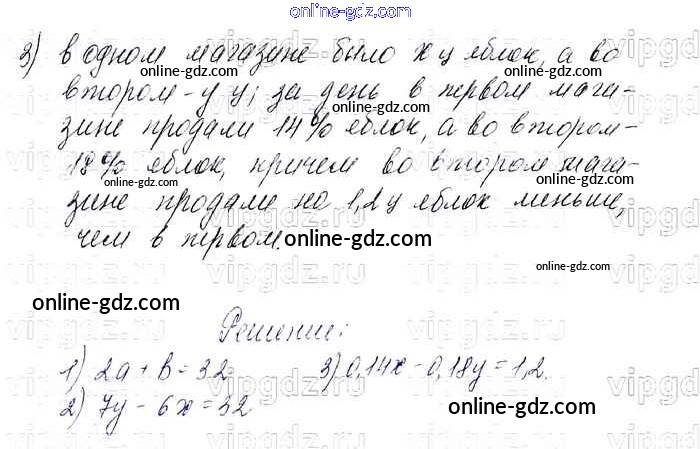 online-gdz.com
3) в одном магазине было х ц яблок, а во
online-gdz.com online-gdz.com
втором - у ц; за день в первом мага-
зине продали 14% яблок, а во втором -
online-gdz.com online-gdz.com
18% яблок, причем во втором мага-
online-gdz.com online-gdz.com
зине продали на 1,2 ц яблок меньше,
чем в первом.
online-gdz.com
online-gdz.com
online-gdz.com
Решение:
1) 2a + b = 32 3) 0,14x - 0,18y = 1,2.
2) 7y - 6x = 32
online-gdz.com